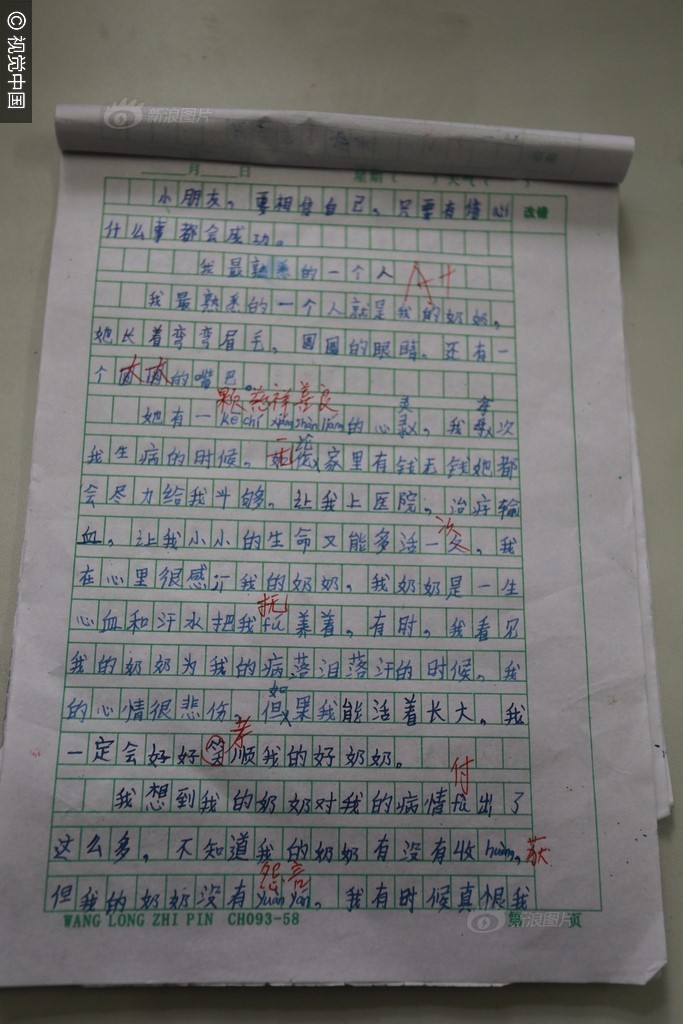 © 视觉中国
新浪图片
月 日 星期( ) 天气( )
小朋友，要相信自己，只要有信心 改错
什么事都会成功。
我最熟悉的一个人 A+
我最熟悉的一个人就是我的奶奶，
她长着弯弯眉毛，圆圆的眼睛。还有一
个大大的嘴巴。
颗慈祥善良
她有一kē chí xiáng shàn liáng的心灵，我每次
我生病的时候。不管家里有钱无钱她都
会尽力给我斗够。让我上医院，治疗输
血。让我小小的生命又能多活一次。我
在心里很感谢我的奶奶，我奶奶是一生
抚
心血和汗水把我fǔ养着，有时，我看见
我的奶奶为我的病落泪落汗的时候，我
如
的心情很悲伤，但果我能活着长大，我
孝
一定会好好笑顺我的好奶奶。
付
我想到我的奶奶对我的病情fù出了
这么多，不知道我的奶奶有没有收huò，获
怨言
但我的奶奶没有yuàn yán。我有时候真恨我
WANG LONG ZHI PIN CH093-58 第 页
新浪图片